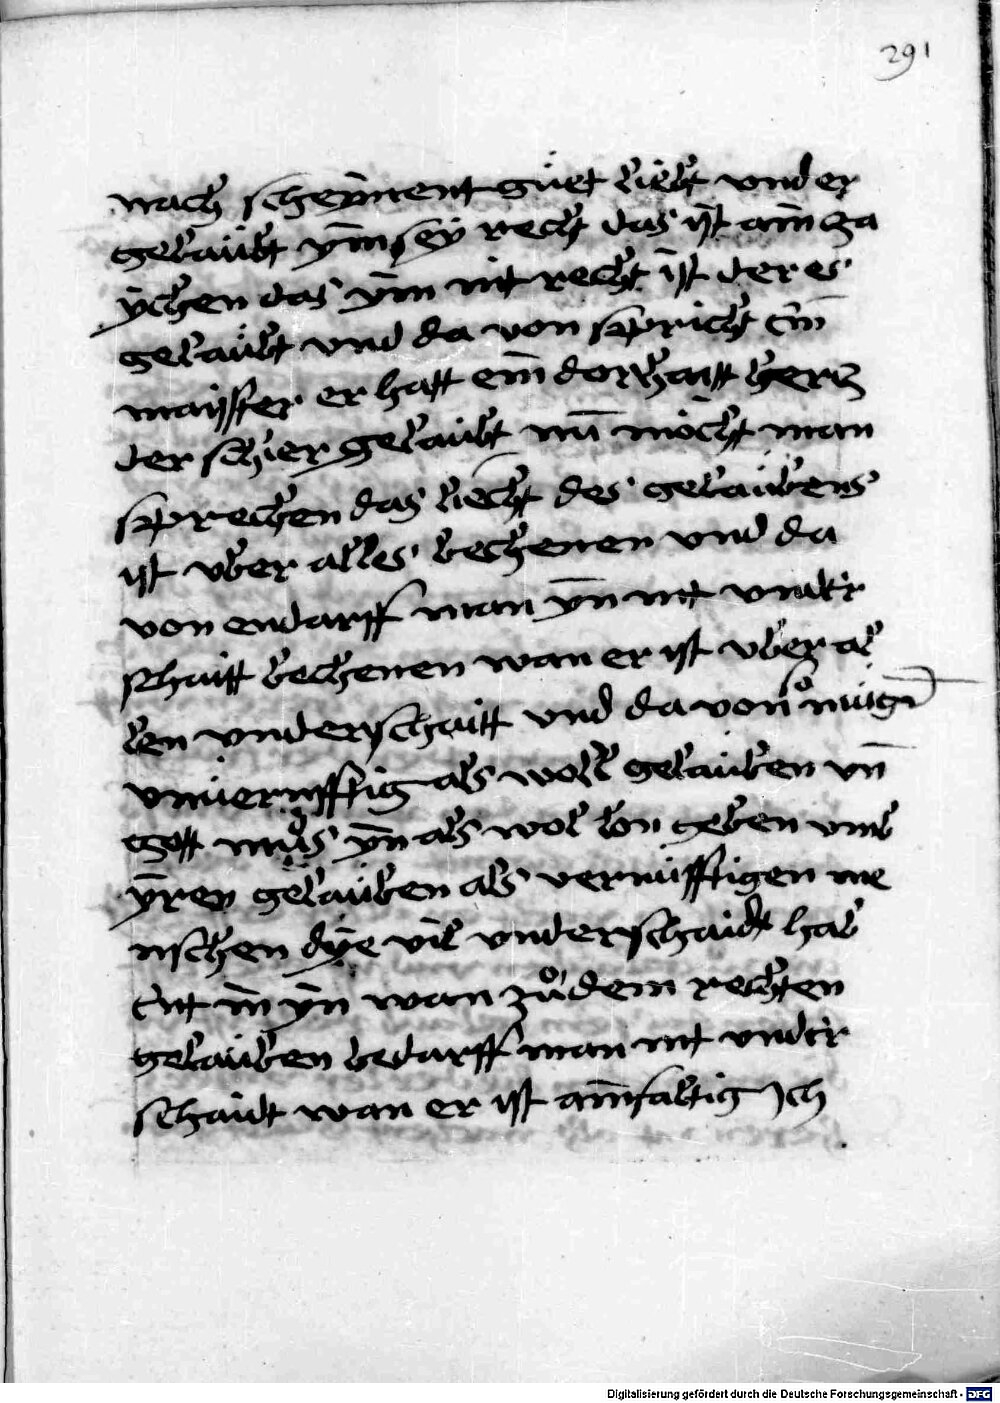 291
nach scheynent guet liebt vnd er
gelaubt ym sey recht das ist ain za
ychen das ym nit recht ist der es
gelaubt vnd da von spricht ein
maijster er hatt ein dorhaitt hercz
der schier gelaubt nu mocht man
sprechen das liecht des gelaubens
ist vber alles bechenen vnd da
von endarff man yn nit vnder
schaitt bechenen wan er ist vber al
len vnderschaitt vnd da von mugen
vnuernyfftig als woll gelauben vn
gott mus yn als wol lon geben vmb
yren gelauben als vernufftigen me
nschen dye vil vnderschaidt hab
ent in yn wan zu dem rechten
gelauben bedarff man nit vnder
schaidt wan er ist ainfaltig Ich
Digitalisierung gefördert durch die Deutsche Forschungsgemeinschaft - DFG